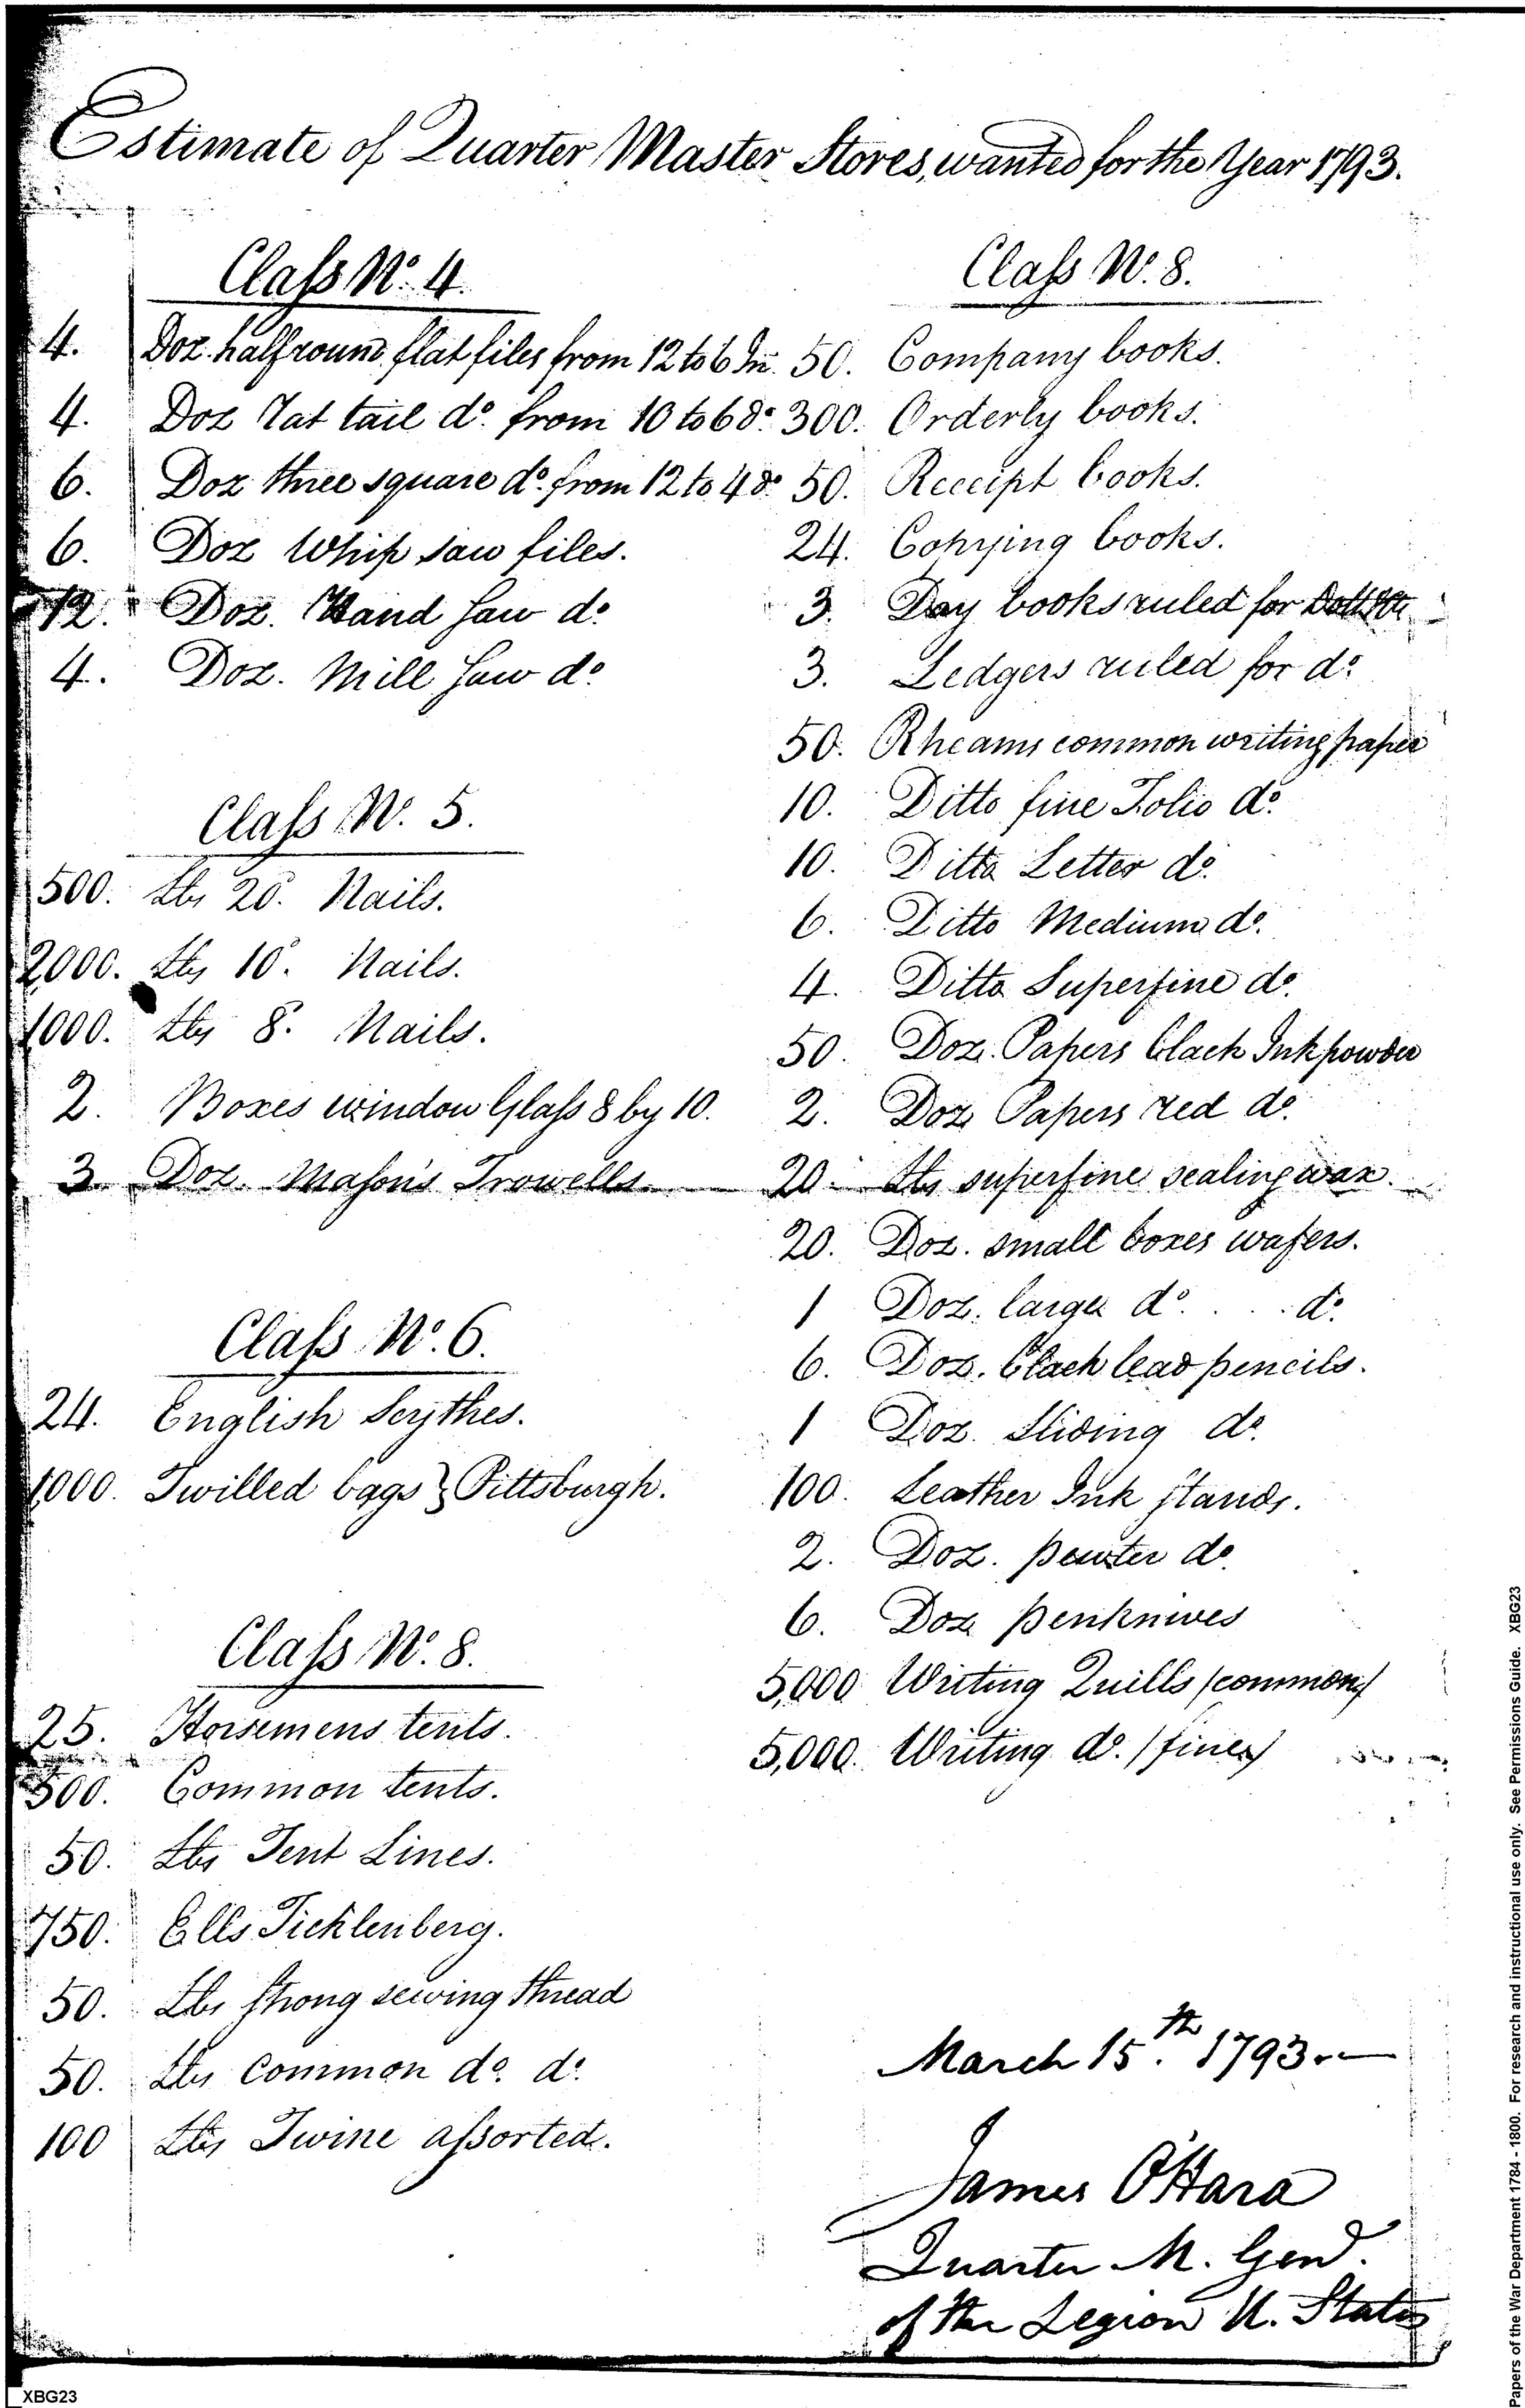 Estimate of Quarter Master Stores, wanted for the Year 1793.
Class No. 4.
4. Doz. halfround flat files from 12 to 6 In.
4. Doz Rat tail do. from 10 to 6 do.
6. Doz three square do. from 12 to 4 do.
6. Doz Whip saw files.
12. Doz. Hand saw do.
4. Doz. Mill saw do.
Class No. 5.
500. Lbs 20d. Nails.
2000. Lbs 10d. Nails.
1000. Lbs 8d. Nails.
2. Boxes window Glass 8 by 10.
3. Doz. Mason's Trowells.
Class No. 6.
24. English Scythes.
1000. Twilled bags } Pittsburgh.
Class No. 8.
25. Horsemens tents.
500. Common tents.
50. Lbs Tent Lines.
750. Ells Ticklenberg.
50. Lbs strong sewing thread
50. Lbs Common do. do.
100 Lbs Twine assorted.
Class No. 8.
50. Company books.
300. Orderly books.
50. Receipt books.
24. Copying books.
3. Day books ruled for
3. Ledgers ruled for do.
50. Rheams common writing paper
10. Ditto fine Folio do.
10. Ditto Letter do.
6. Ditto Medium do.
4. Ditto Superfine do.
50. Doz. Papers black Ink powder
2. Doz Papers red do.
20. Lbs superfine sealing wax.
20. Doz. small boxes wafers.
1 Doz. larger do. . . . do.
6. Doz. black lead pencils.
1 Doz. Sliding do.
100. Leather Ink Stands.
2. Doz. pewter do.
6. Doz penknives
5,000 Writing Quills (common)
5,000. Writing do. (fine)
March 15.th 1793.—
James O'Hara
Quarter M. Genl.
of the Legion U. States
XBG23
Papers of the War Department 1784 - 1800. For research and instructional use only. See Permissions Guide. XBG23